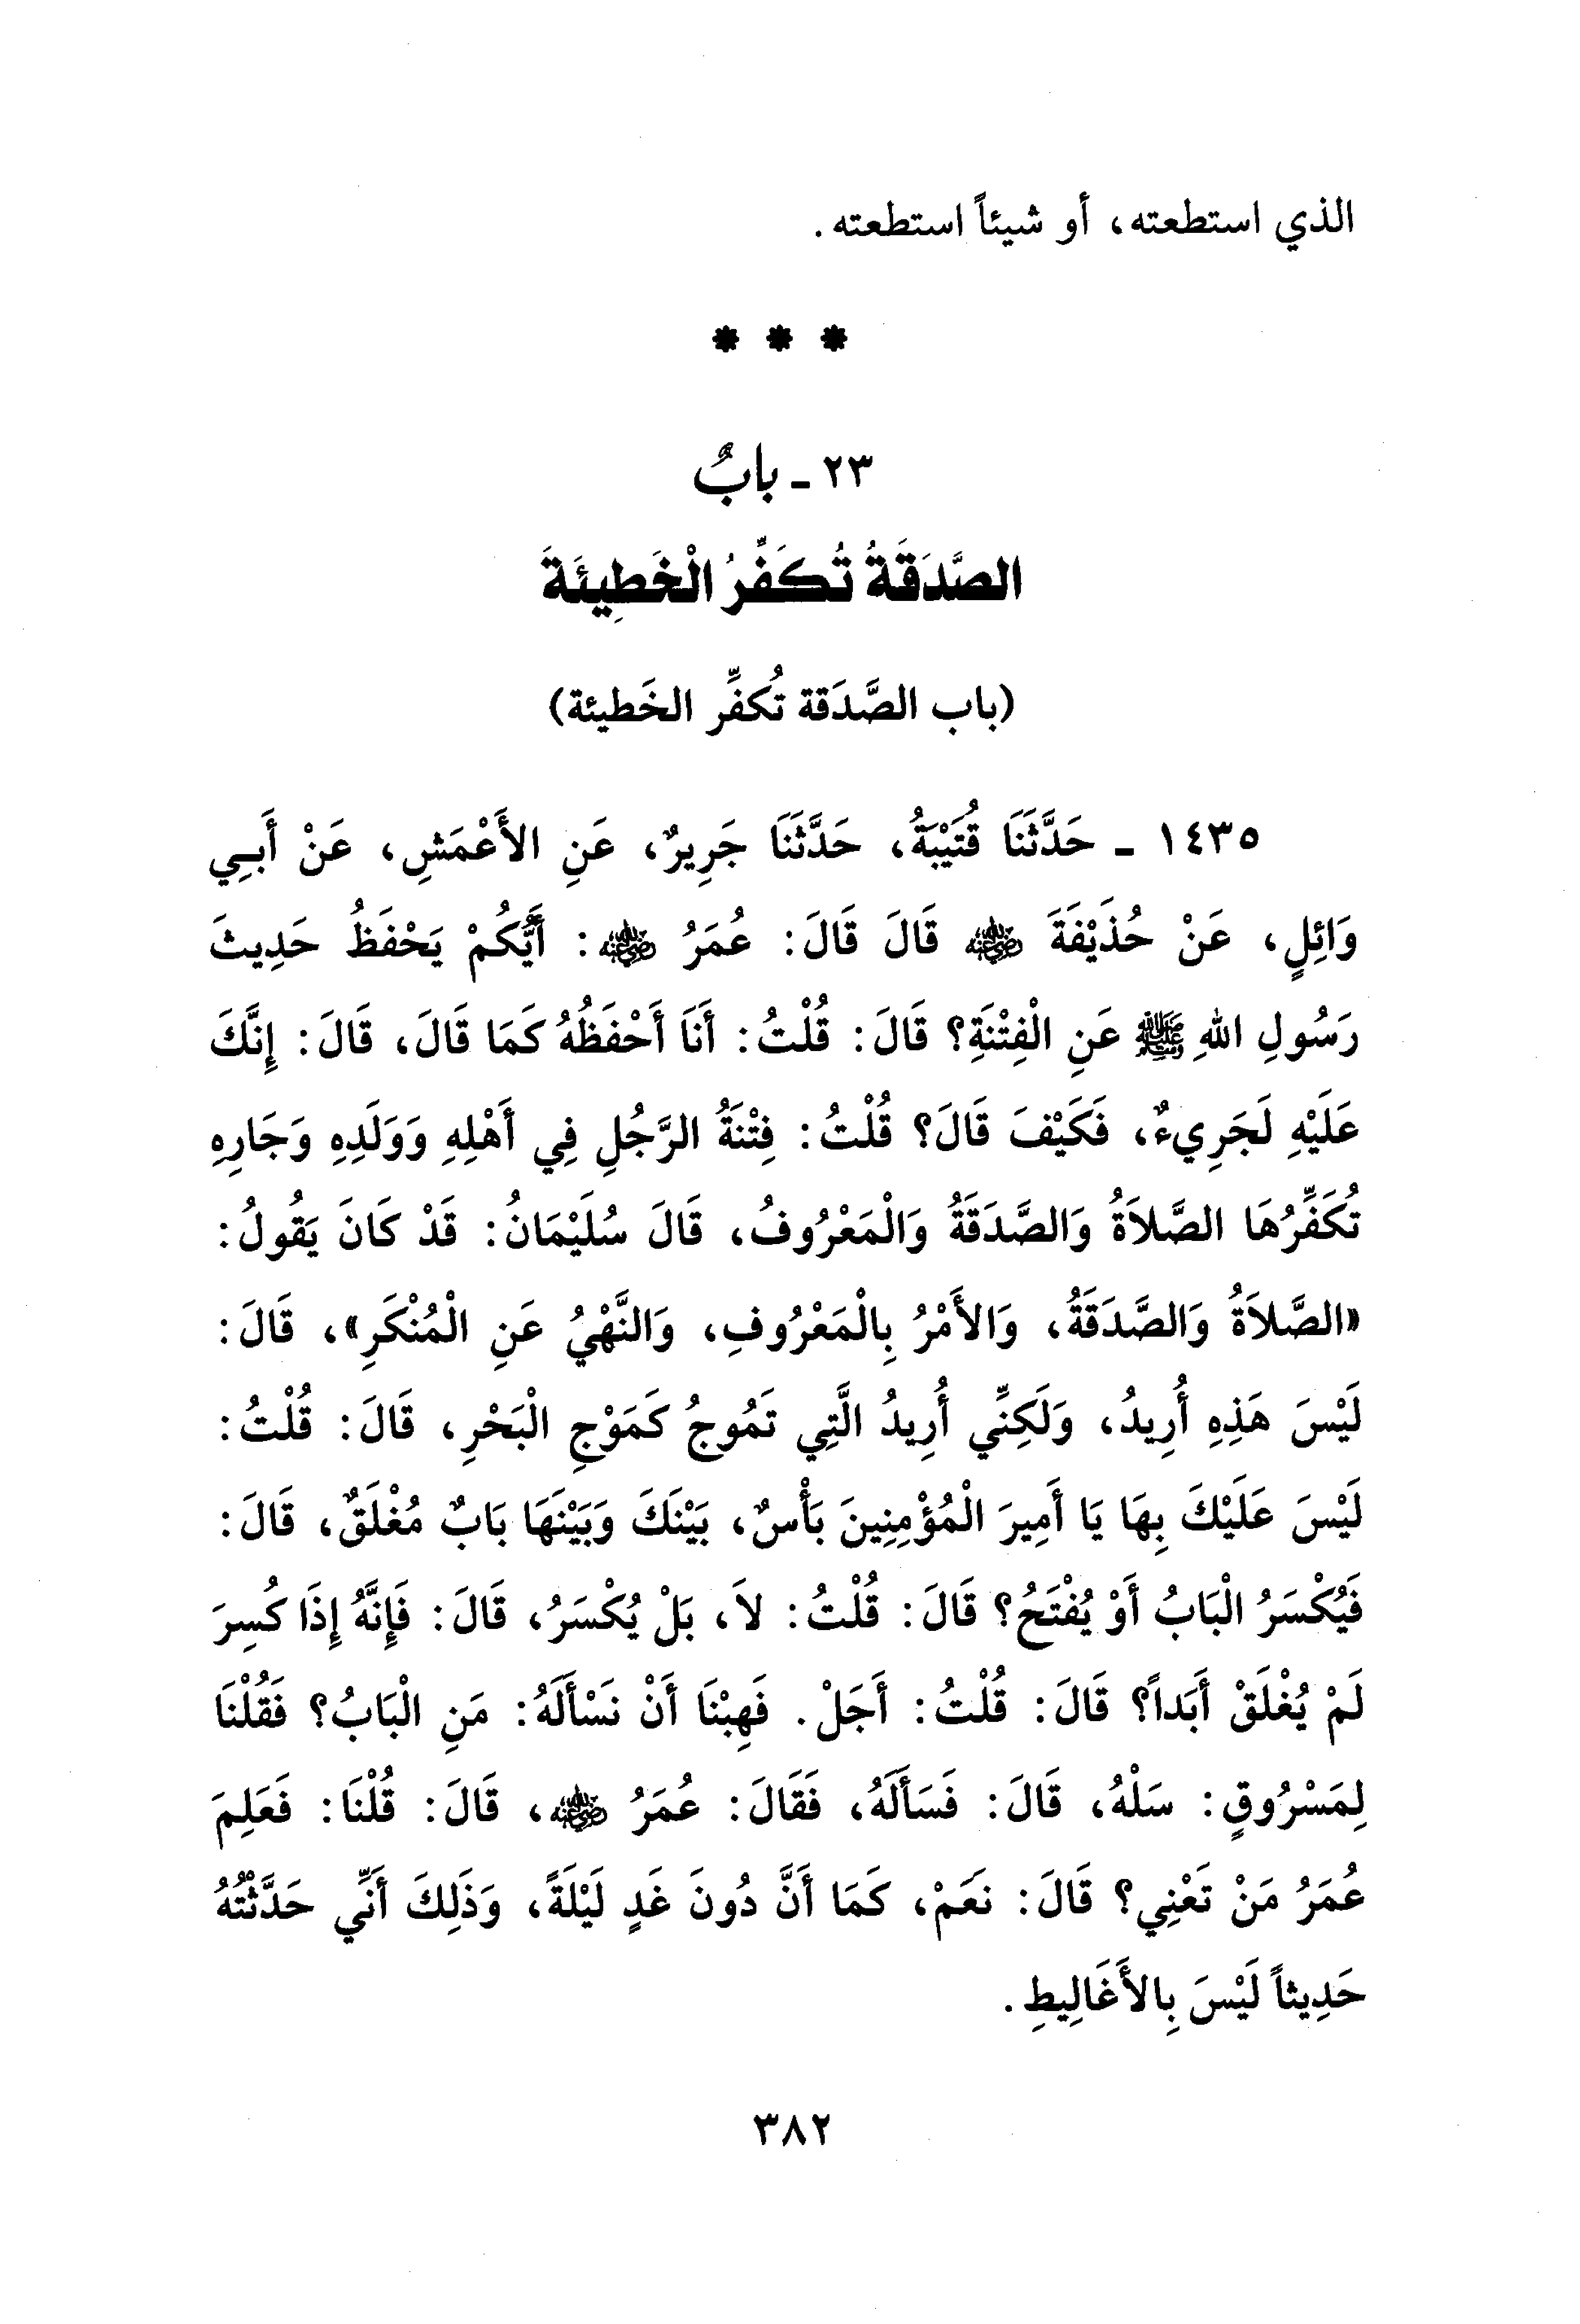 الذي استطعته، أو شيئاً استطعته.
* * *
٢٣ - بابٌ
الصَّدَقَةُ تُكَفِّرُ الْخَطِيئَةَ
(باب الصَّدَقة تُكفِّر الخَطيئة)
١٤٣٥ - حَدَّثَنَا قُتَيْبَةُ، حَدَّثَنَا جَرِيرٌ، عَنِ الأَعْمَشِ، عَنْ أَبِي
وَائِلٍ، عَنْ حُذَيْفَةَ رضي الله عنه قَالَ قَالَ: عُمَرُ رضي الله عنه: أَيُّكُمْ يَحْفَظُ حَدِيثَ
رَسُولِ اللهِ ﷺ عَنِ الْفِتْنَةِ؟ قَالَ: قُلْتُ: أَنَا أَحْفَظُهُ كَمَا قَالَ، قَالَ: إِنَّكَ
عَلَيْهِ لَجَرِيءٌ، فَكَيْفَ قَالَ؟ قُلْتُ: فِتْنَةُ الرَّجُلِ فِي أَهْلِهِ وَوَلَدِهِ وَجَارِهِ
تُكَفِّرُهَا الصَّلاَةُ وَالصَّدَقَةُ وَالْمَعْرُوفُ، قَالَ سُلَيْمَانُ: قَدْ كَانَ يَقُولُ:
«الصَّلاَةُ وَالصَّدَقَةُ، وَالأَمْرُ بِالْمَعْرُوفِ، وَالنَّهْيُ عَنِ الْمُنْكَرِ»، قَالَ:
لَيْسَ هَذِهِ أُرِيدُ، وَلَكِنِّي أُرِيدُ الَّتِي تَمُوجُ كَمَوْجِ الْبَحْرِ، قَالَ: قُلْتُ:
لَيْسَ عَلَيْكَ بِهَا يَا أَمِيرَ الْمُؤْمِنِينَ بَأْسٌ، بَيْنَكَ وَبَيْنَهَا بَابٌ مُغْلَقٌ، قَالَ:
فَيُكْسَرُ الْبَابُ أَوْ يُفْتَحُ؟ قَالَ: قُلْتُ: لاَ، بَلْ يُكْسَرُ، قَالَ: فَإِنَّهُ إِذَا كُسِرَ
لَمْ يُغْلَقْ أَبَداً؟ قَالَ: قُلْتُ: أَجَلْ. فَهِبْنَا أَنْ نَسْأَلَهُ: مَنِ الْبَابُ؟ فَقُلْنَا
لِمَسْرُوقٍ: سَلْهُ، قَالَ: فَسَأَلَهُ، فَقَالَ: عُمَرُ رضي الله عنه، قَالَ: قُلْنَا: فَعَلِمَ
عُمَرُ مَنْ تَعْنِي؟ قَالَ: نَعَمْ، كَمَا أَنَّ دُونَ غَدٍ لَيْلَةً، وَذَلِكَ أَنِّي حَدَّثْتُهُ
حَدِيثاً لَيْسَ بِالأَغَالِيطِ.
٣٨٢